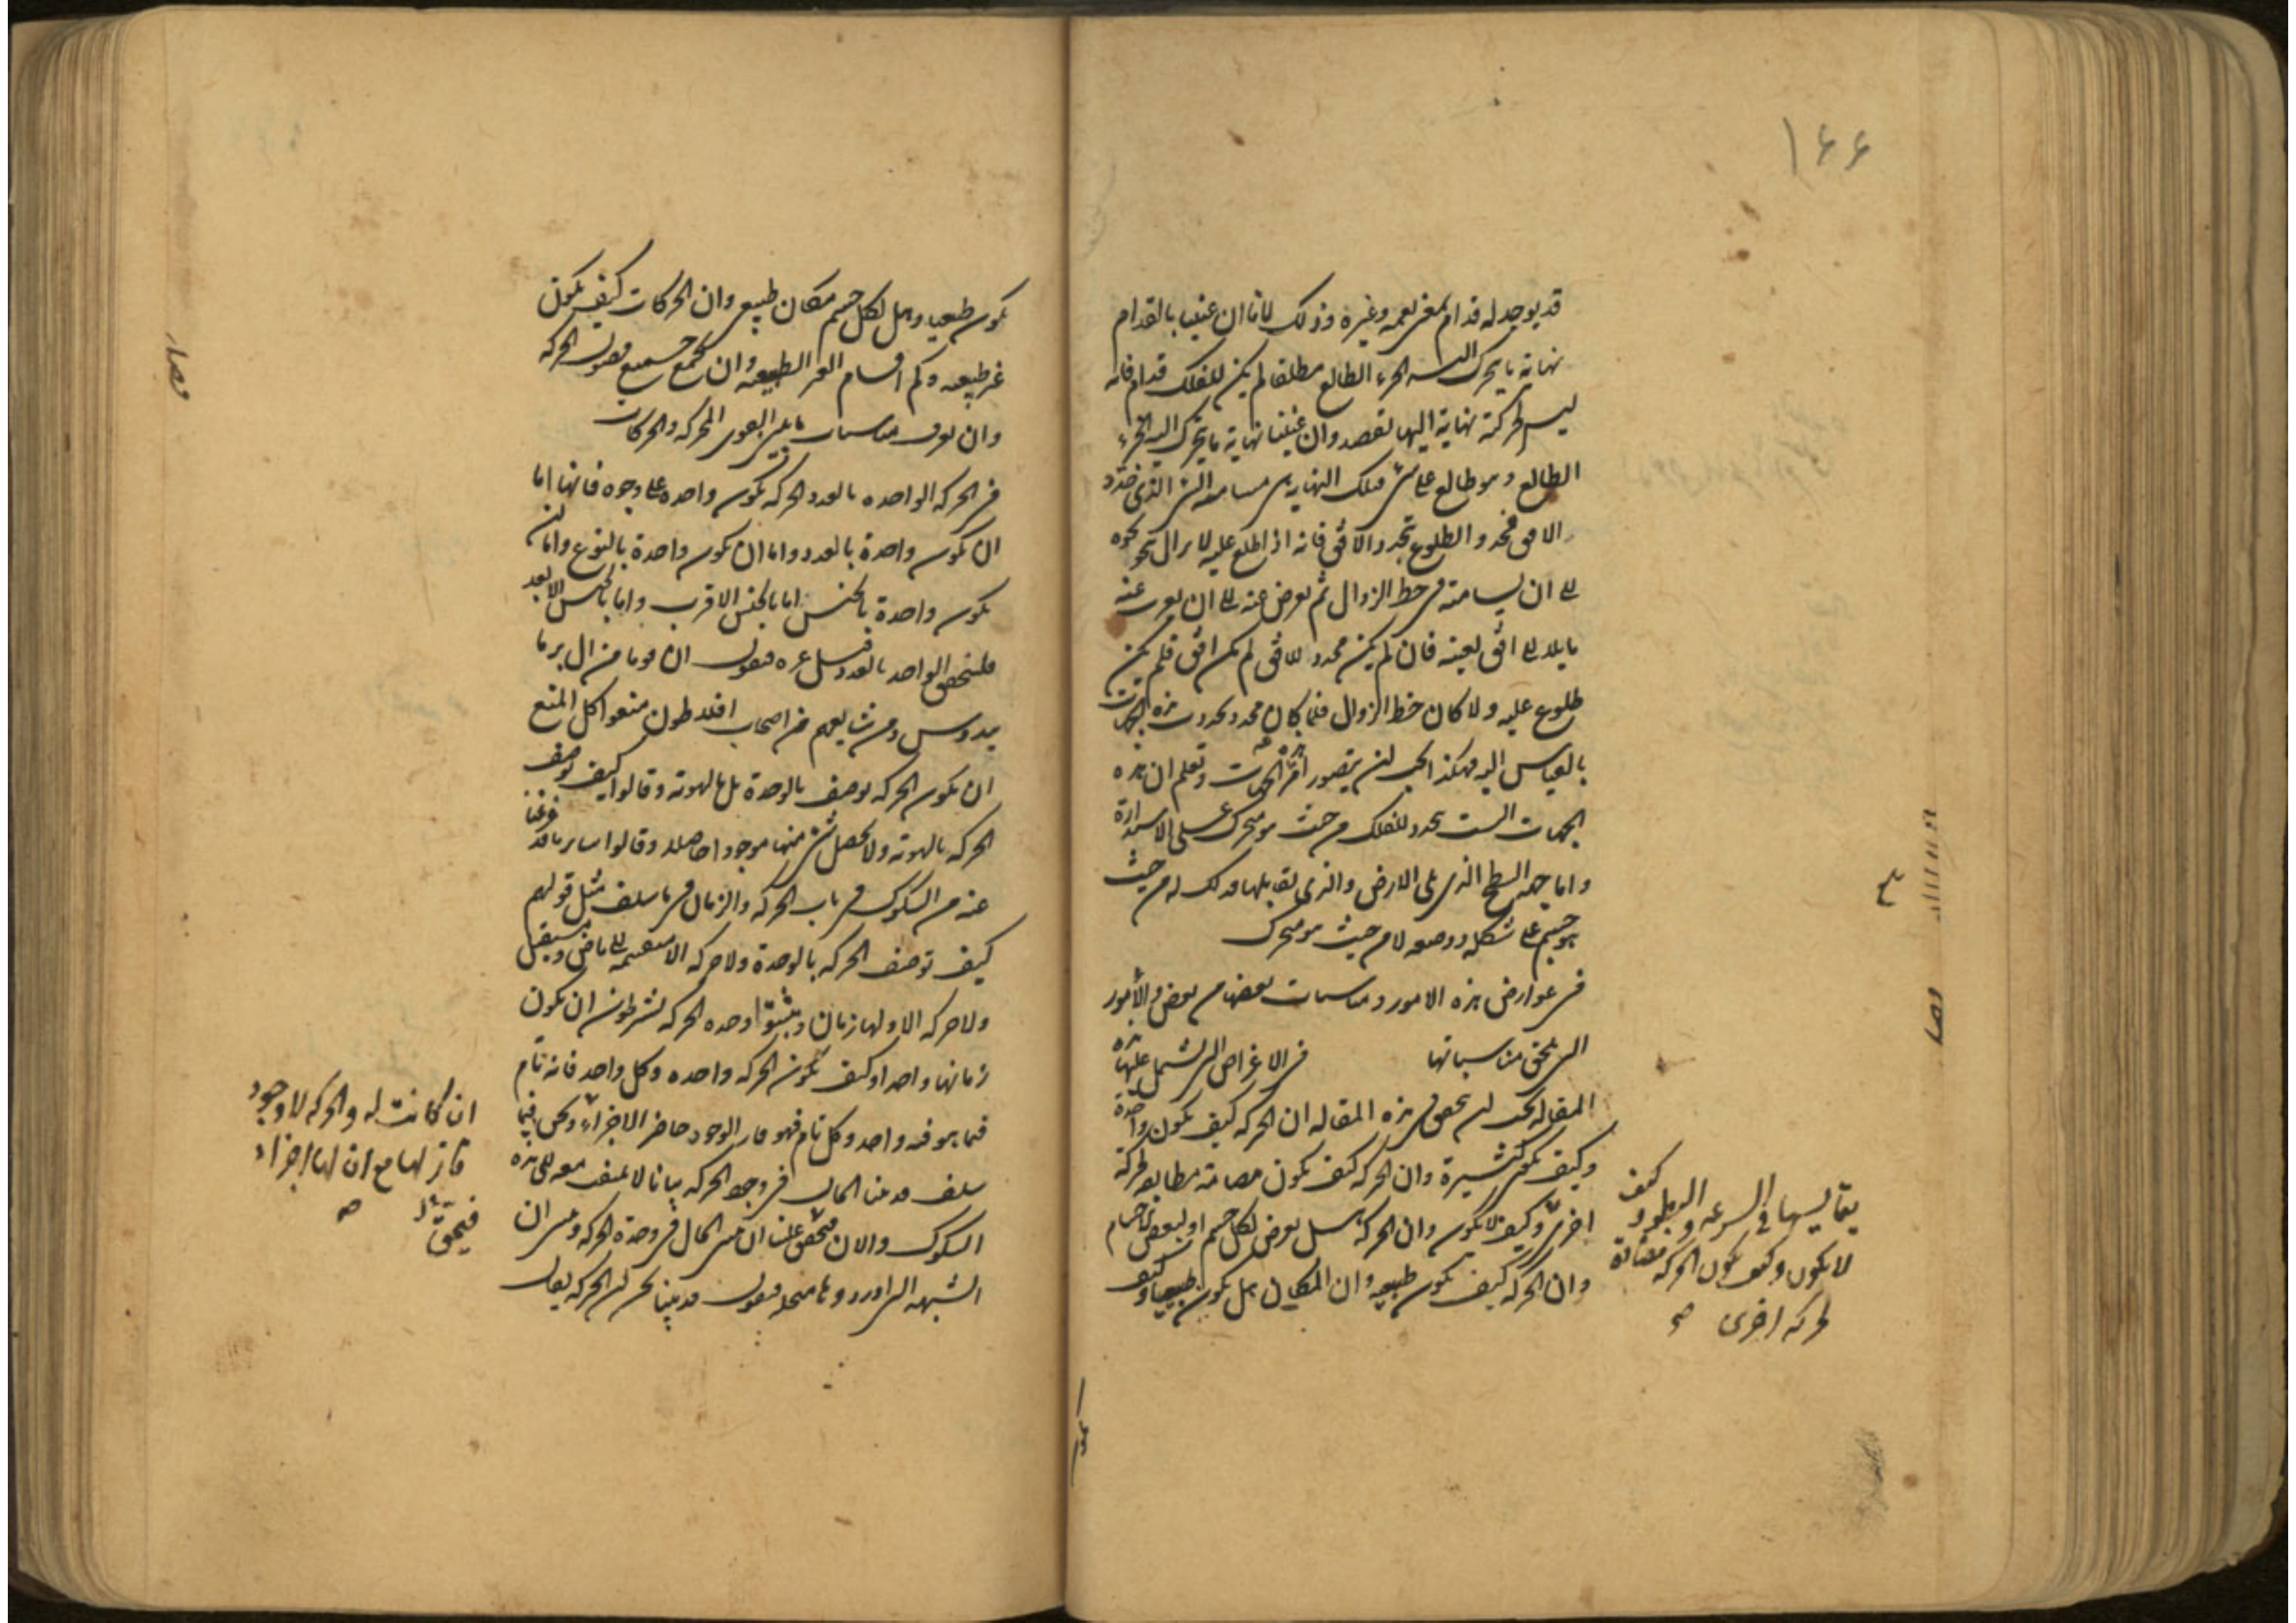 ١٦٦
قد يوجد له قدام بمعنى يعمه وغيره وذلك لانا ان عنينا بالقدام
نهاية ما يتحرك اليه الجزء الطالع مطلقا لم يكن للفلك قدام فانه
ليس لحركته نهاية اليها تقصد وان عنينا نهاية ما يتحرك اليه الجزء
الطالع وهو طالع على شئ فتلك النهاية هي مسامتة الشئ الذى حدد
الافق فحدد الطلوع بتجدد الافق فانه اذا طلع عليه لا يزال يتحرك نحوه
الى ان يسامته فى خط الزوال ثم يعرض عنه الى ان يغرب عنه
مايلا الى افق بعينه فان لم يكن محدد للافق لم يكن افق فلم يكن
طلوع عليه ولا كان خط الزوال فلما كان محدد تحددت هذه الجهات
بالقياس اليه فهكذا يجب ان يتصور امر هذه الجهات وتعلم ان هذه
الجهات الست تتحدد للفلك من حيث هو متحرك على الاستدارة
واما جهة السطح الذى يلى الارض والذى يقابلها فذلك له من حيث
هو جسم على شكله ووضعه لا من حيث هو متحرك
فى عوارض هذه الامور ومناسبات بعضها من بعض والامور
التى تلحق مناسباتها فى الاغراض التى تشتمل عليها هذه
المقالة يجب ان نحقق فى هذه المقالة ان الحركة كيف تكون واحدة
وكيف تكون كثيرة وان الحركة كيف تكون مضامة مطابقة لحركة
اخرى وكيف لا تكون وان الحركة هل تعرض لكل جسم او لبعض الاجسام
وان الحركة كيف تكون طبيعية وان المكان هل يكون طبيعيا وكيف
يقايسها فى السرعة والبطؤ وكيف
لا تكون وكيف تكون الحركة مضادة
لحركة اخرى صح
يكون طبيعيا وهل لكل جسم مكان طبيعى وان الحركات كيف تكون
غير طبيعية وكم اقسام الغير الطبيعية وان نجمع جميع فصول الحركة
وان نعرف مناسبات ما بين القوى المحركة والحركات
فى الحركة الواحدة بالعدد الحركة تكون واحدة على وجوه فانها اما
ان تكون واحدة بالعدد واما ان تكون واحدة بالنوع واما ان
تكون واحدة بالجنس اما بالجنس الاقرب واما بالجنس الابعد
فلنحقق الواحد بالعدد قبل غيره فنقول ان قوما من ال برما
نيدوس ومن شايعهم من اصحاب افلاطون منعوا كل المنع
ان تكون الحركة توصف بالوحدة بل بالهوية وقالوا كيف توصف
الحركة بالهوية ولا يحصل شئ منها موجودا حاصلا وقالوا ساير ما قد فرغنا
عنه من الشكوك فى باب الحركة والزمان فيما سلف مثل قولهم
كيف توصف الحركة بالوحدة ولا حركة الا منقسمة الى ماض ومستقبل
ولا حركة الا ولها زمان ومثبتوا وحدة الحركة يشرطون ان يكون
زمانها واحدا وكيف تكون الحركة واحدة وكل واحد فانه تام
فيما هو فيه واحد وكل تام فهو قار الوجود حاضر الاجزاء ونحن فيما
سلف قد بينا الحال فى وجود الحركة بيانا لا يلتفت معه الى هذه
الشكوك والان فيحق علينا ان نبين الحال فى وحدة الحركة ونبين ان
الشبهة التى اوردوها منحلة فنقول قد بينا نحن ان الحركة يقال
ان كانت له والحركة لا وجود
قار لها مع ان لها اجزاء
صح